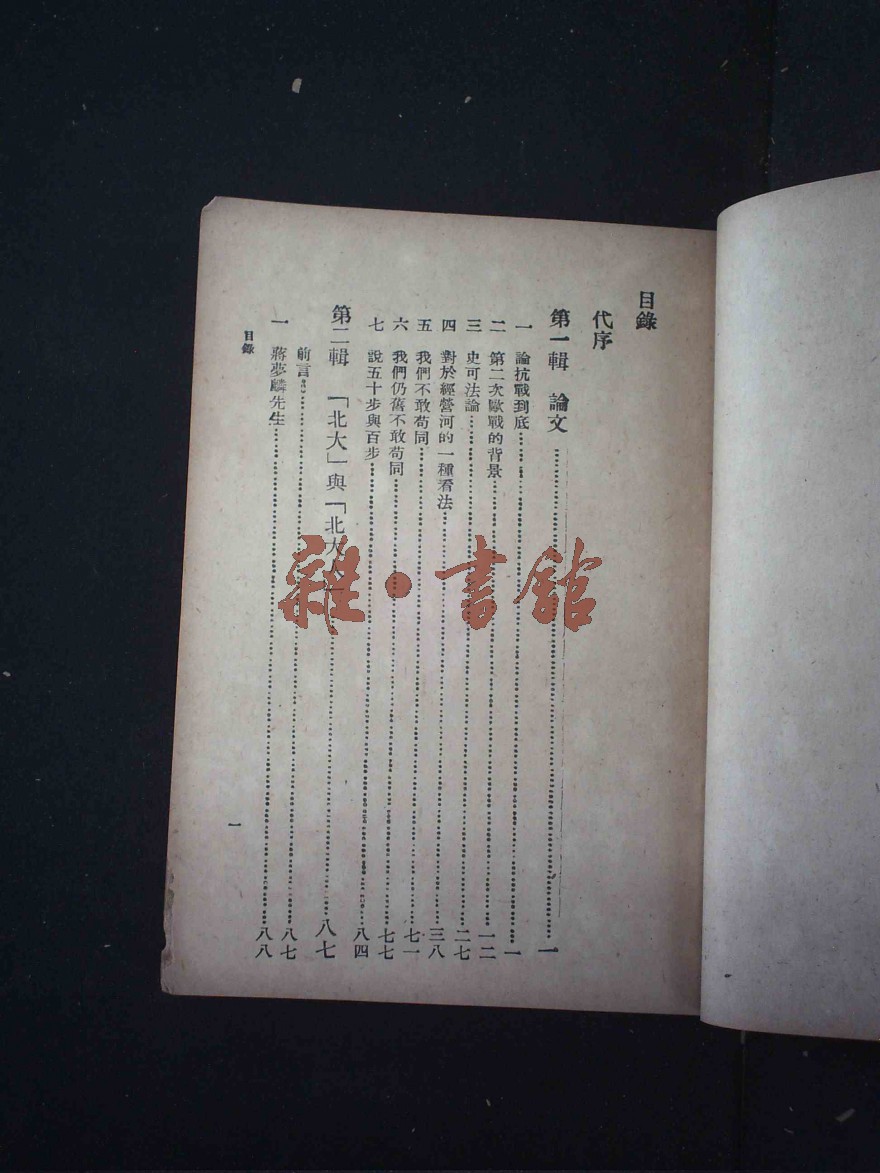 目錄
代序
第一輯 論文……一
一 論抗戰到底……一
二 第二次歐戰的背景……一二
三 史可法論……二七
四 對於經營河的一種看法……三八
五 我們不敢苟同……七一
六 我們仍舊不敢苟同……七七
七 說五十步與百步……八四
第二輯 「北大」與「北大人」……八七
前言……八七
一 蔣夢麟先生……八八
目錄
一
雜·書館